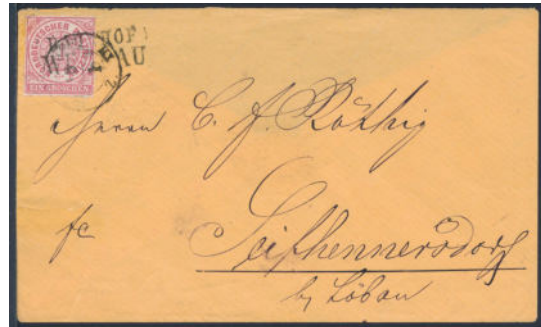 NORDDEUTSCHER
EIN GROSCHEN
Herrn C. F. Röthig
fr
Seifhennersdorf
by Löbau